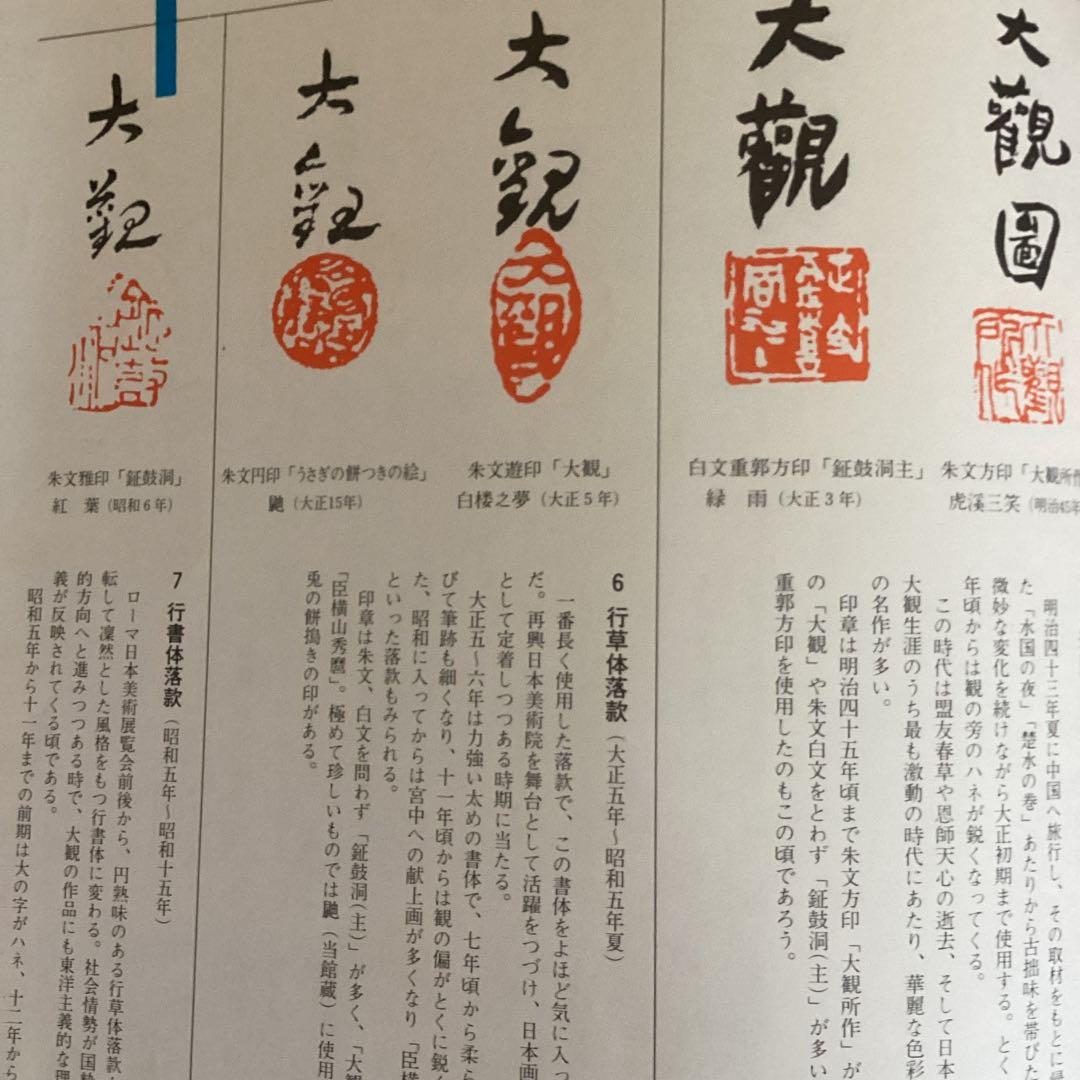 大觀圖
大觀
大觀
大觀
大觀
朱文方印「大観所作
虎溪三笑（明治45年
白文重郭方印「鉦鼓洞主」
緑　雨（大正3年）
朱文遊印「大観」
白楼之夢（大正5年）
朱文円印「うさぎの餅つきの絵」
鼬（大正15年）
朱文雅印「鉦鼓洞」
紅　葉（昭和6年）
明治四十三年夏に中国へ旅行し、その取材をもとに
た「水国の夜」「楚水の巻」あたりから古拙味を帯びた
微妙な変化を続けながら大正初期まで使用する。とく
年頃からは観の旁のハネが鋭くなってくる。
この時代は盟友春草や恩師天心の逝去、そして日本
大観生涯のうち最も激動の時代にあたり、華麗な色彩
の名作が多い。
印章は明治四十五年頃まで朱文方印「大観所作」が
の「大観」や朱文白文をとわず「鉦鼓洞(主)」が多い
重郭方印を使用したのもこの頃であろう。
6 行草体落款（大正五年～昭和五年夏）
一番長く使用した落款で、この書体をよほど気に入っ
だ。再興日本美術院を舞台として活躍をつづけ、日本画
として定着しつつある時期に当たる。
大正五～六年は力強い太めの書体で、七年頃から柔ら
びて筆跡も細くなり、十一年頃からは観の偏がとくに鋭く
た、昭和に入ってからは宮中への献上画が多くなり「臣横
といった落款もみられる。
印章は朱文、白文を問わず「鉦鼓洞(主)」が多く、「大観
「臣横山秀麿」。極めて珍しいものでは鼬（当館蔵）に使用
兎の餅搗きの印がある。
7 行書体落款（昭和五年～昭和十五年）
ローマ日本美術展覧会前後から、円熟味のある行草体落款
転して凜然とした風格をもつ行書体に変わる。社会情勢が国粋
的方向へと進みつつある時で、大観の作品にも東洋主義的な理
義が反映されてくる頃である。
昭和五年から十一年までの前期は大の字がハネ、十二年から